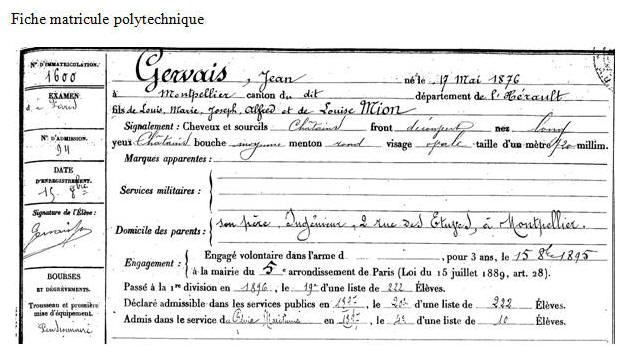 Fiche matricule polytechnique
N° D'IMMATRICULATION.
1600
EXAMEN
à Paris
N° D'ADMISSION.
94
DATE
D'ENREGISTREMENT.
15 8bre
Signature de l'Élève :
Gervais
BOURSES
ET DÉGRÈVEMENTS.
Trousseau et première
mise d'équipement.
Pensionnaire
Gervais, Jean né le 17 Mai 1876
à Montpellier canton du dit département de l'Hérault
fils de Louis, Marie, Joseph, Alfred et de Louise Mion
Signalement : Cheveux et sourcils Châtains front découvert nez long
yeux Châtains bouche moyenne menton rond visage ovale taille d'un mètre 720 millim.
Marques apparentes :
Services militaires :
Domicile des parents : son père, Ingénieur, 2 rue des Etuves, à Montpellier.
Engagement : Engagé volontaire dans l'arme d , pour 3 ans, le 15 8bre 1895
à la mairie du 5e arrondissement de Paris (Loi du 15 juillet 1889, art. 28).
Passé à la 1re division en 1896, le 19e d'une liste de 222 Élèves.
Déclaré admissible dans les services publics en 1897, le 20e d'une liste de 222 Élèves.
Admis dans le service du Génie Maritime en 1897, le 4e d'une liste de 10 Élèves.